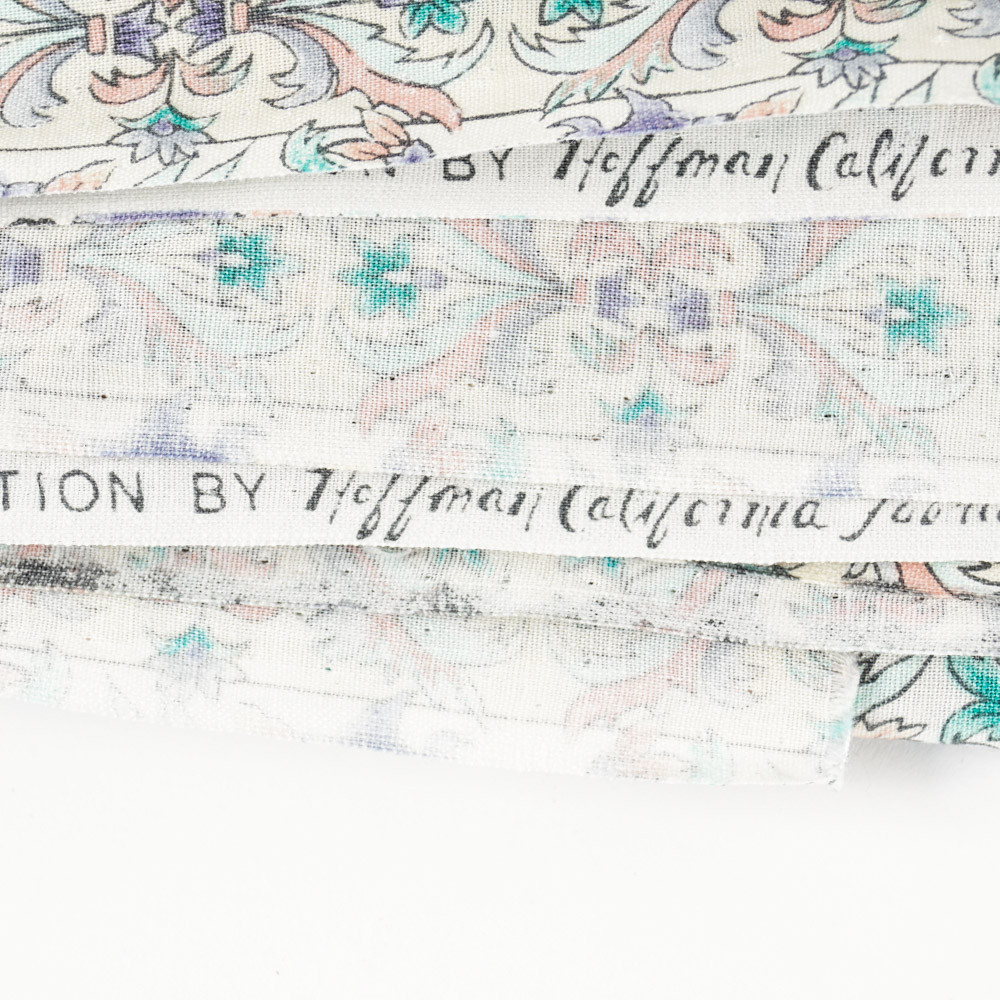 BY Hoffman Californ
TION BY Hoffman California